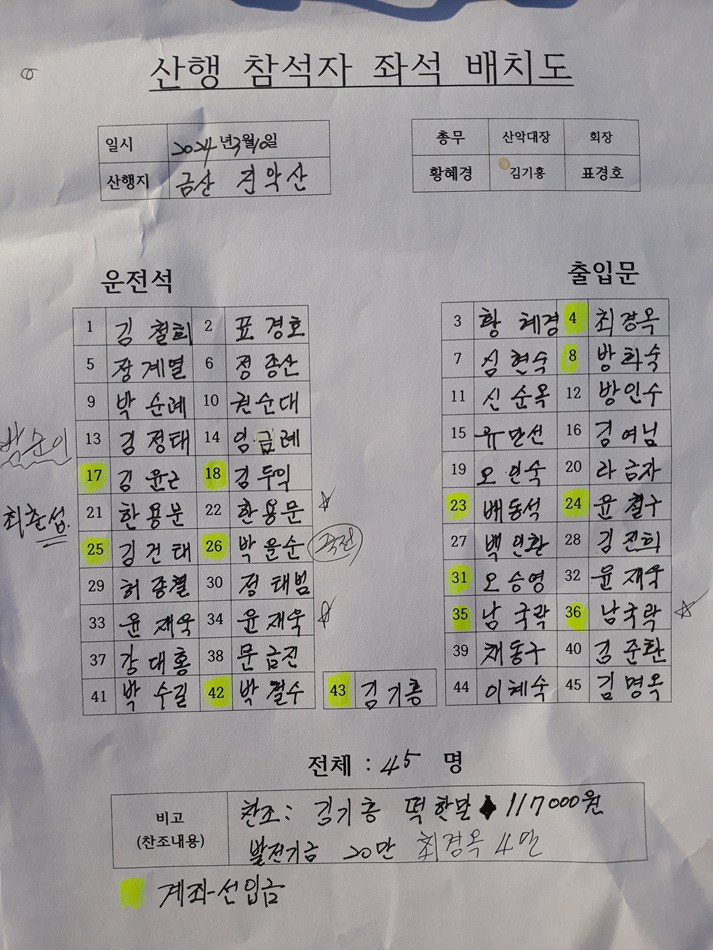 산행 참석자 좌석 배치도
일시 2024년3월10일
산행지 금산 진악산
총무 산악대장 회장
황혜경 김기홍 표경호
운전석
출입문
1 김철희 2 표경호 3 황혜경 4 최경옥
5 장계열 6 정종산 7 심현숙 8 방희숙
9 박순례 10 권순대 11 신순옥 12 방인수
박순이 13 김정태 14 임금례 15 유만선 16 김여님
17 김윤근 18 김두익 19 오인숙 20 라금자
최춘섭 21 한용문 22 한용문 ☆ 23 배동석 24 윤철구
25 김건태 26 박윤순 27 백인환 28 김진희
29 허종철 30 정태범 31 오승영 32 윤재욱
33 윤재욱 34 윤재욱 ☆ 35 남국락 36 남국락 ☆
37 강대홍 38 문금진 39 채동구 40 김준환
41 박수길 42 박철수 43 김기홍 44 이혜숙 45 김명옥
전체 : 45 명
비고
(찬조내용)
찬조: 김기홍 떡한말 117000원
발전기금 20만 최경옥 4만
계좌선입금